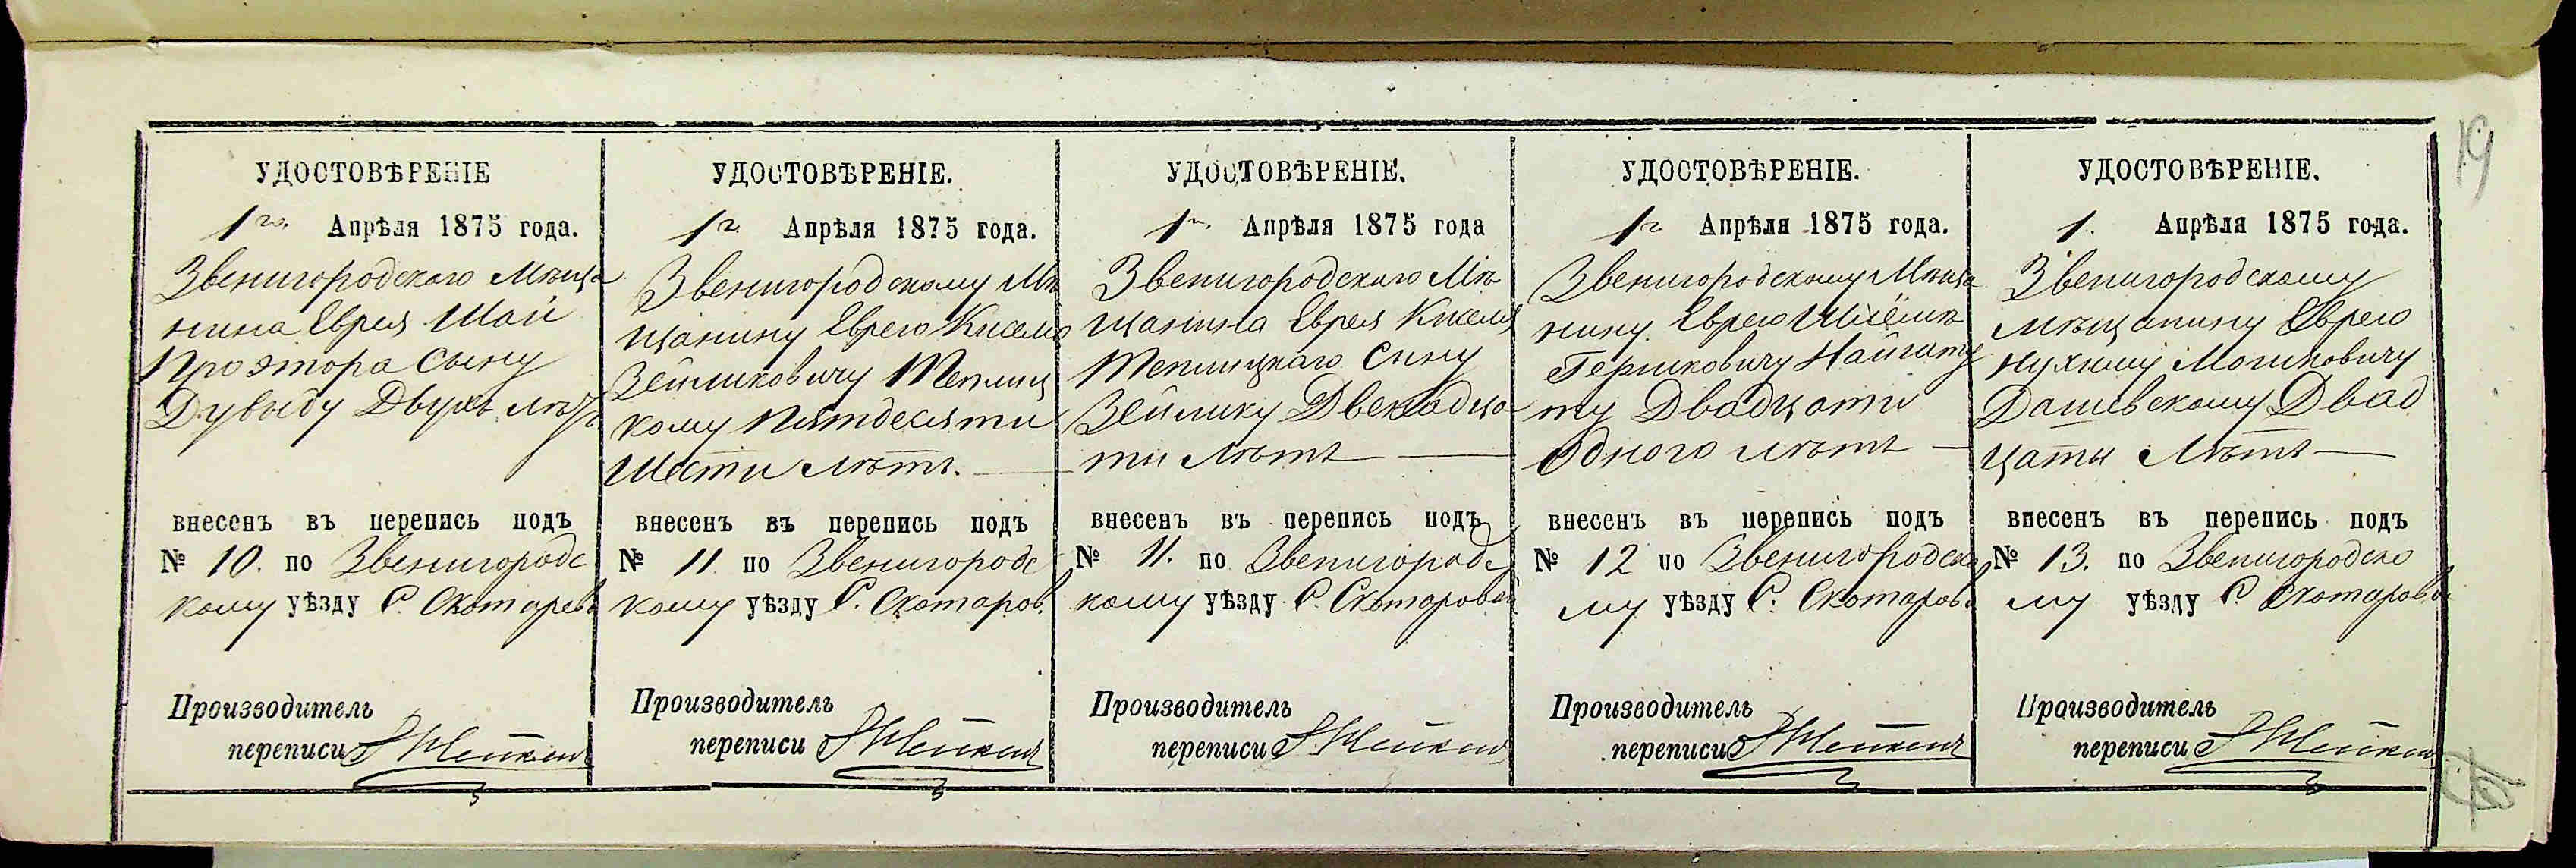 19
УДОСТОВѢРЕНІЕ
1го. Апрѣля 1875 года.
Звенигородского Мѣща
нина Еврея Шаи
Проэтора сыну
Дувыду Двухъ лѣтъ
внесенъ въ перепись подъ
№ 10. по Звенигородс
кому уѣзду С. Скотаревѣ
Производитель
переписи
УДОСТОВѢРЕНІЕ.
1г. Апрѣля 1875 года.
Звенигородскому Мѣ
щанину Еврею Киселю
Зейликовичу Теплиц
кому Пятдесяти
Шести лѣтъ.
внесенъ въ перепись подъ
№ 11 по Звенигородс
кому уѣзду С. Скотаров.
Производитель
переписи
УДОСТОВѢРЕНІЕ.
1г. Апрѣля 1875 года
Звенигородского Мѣ
щанина Еврея Киселя
Теплицкаго сыну
Зейлику Двенадца
ти лѣтъ
внесенъ въ перепись подъ
№ 11. по Звенигородс
кому уѣзду С. Скотаровой
Производитель
переписи
УДОСТОВѢРЕНІЕ.
1г Апрѣля 1875 года.
Звенигородскому Мѣща
нину Еврею
Гершковичу
ту Двадцати
Одного лѣтъ
внесенъ въ перепись подъ
№ 12 по Звенигородско
му уѣзду С. Скотаров.
Производитель
переписи
УДОСТОВѢРЕНІЕ.
1. Апрѣля 1875 года.
Звенигородскому
мѣщанину Еврею
Нухиму Мошковичу
Дашевскому Двад
цаты Лѣтъ
внесенъ въ перепись подъ
№ 13. по Звенигородско
му уѣзду С. Скотаров.
Производитель
переписи